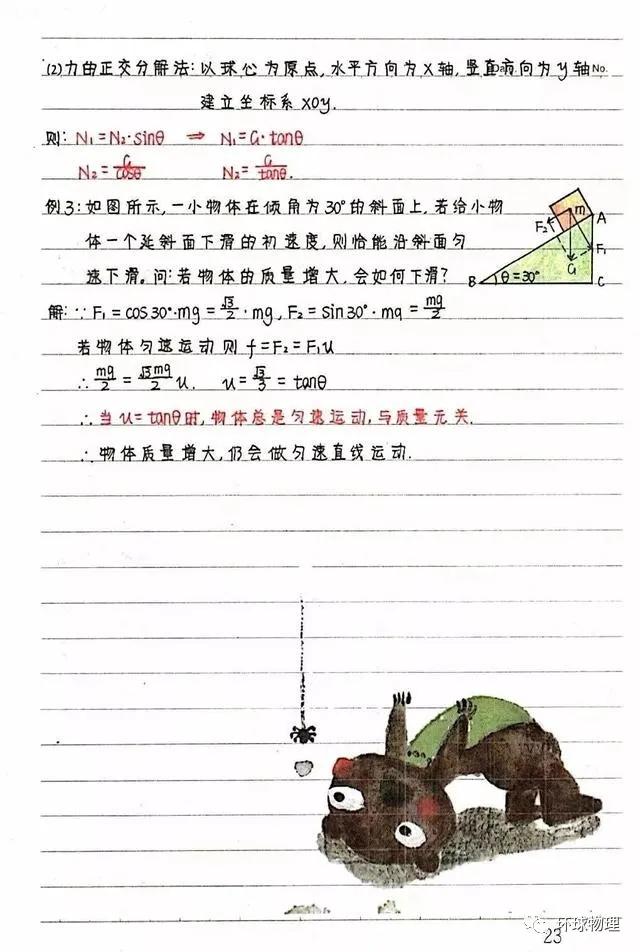 (2)力的正交分解法:以球心为原点,水平方向为x轴,竖直方向为y轴 No.
建立坐标系xoy.
则: N₁=N₂·sinθ ⇒ N₁=G·tanθ
N₂=G/cosθ N₂=G/tanθ.
例3:如图所示,一小物体在倾角为30°的斜面上,若给小物
体一个延斜面下滑的初速度,则恰能沿斜面匀
速下滑。问:若物体的质量增大,会如何下滑?
m
A
F₂
F₁
G
B
θ=30°
C
解:∵F₁=cos30°·mg=√3/2·mg, F₂=sin30°·mg=mg/2
若物体匀速运动则f=F₂=F₁u
∴mg/2=√3mg/2 u. u=√3/3=tanθ
∴当u=tanθ时,物体总是匀速运动,与质量无关.
∴物体质量增大,仍会做匀速直线运动.
环球物理
23